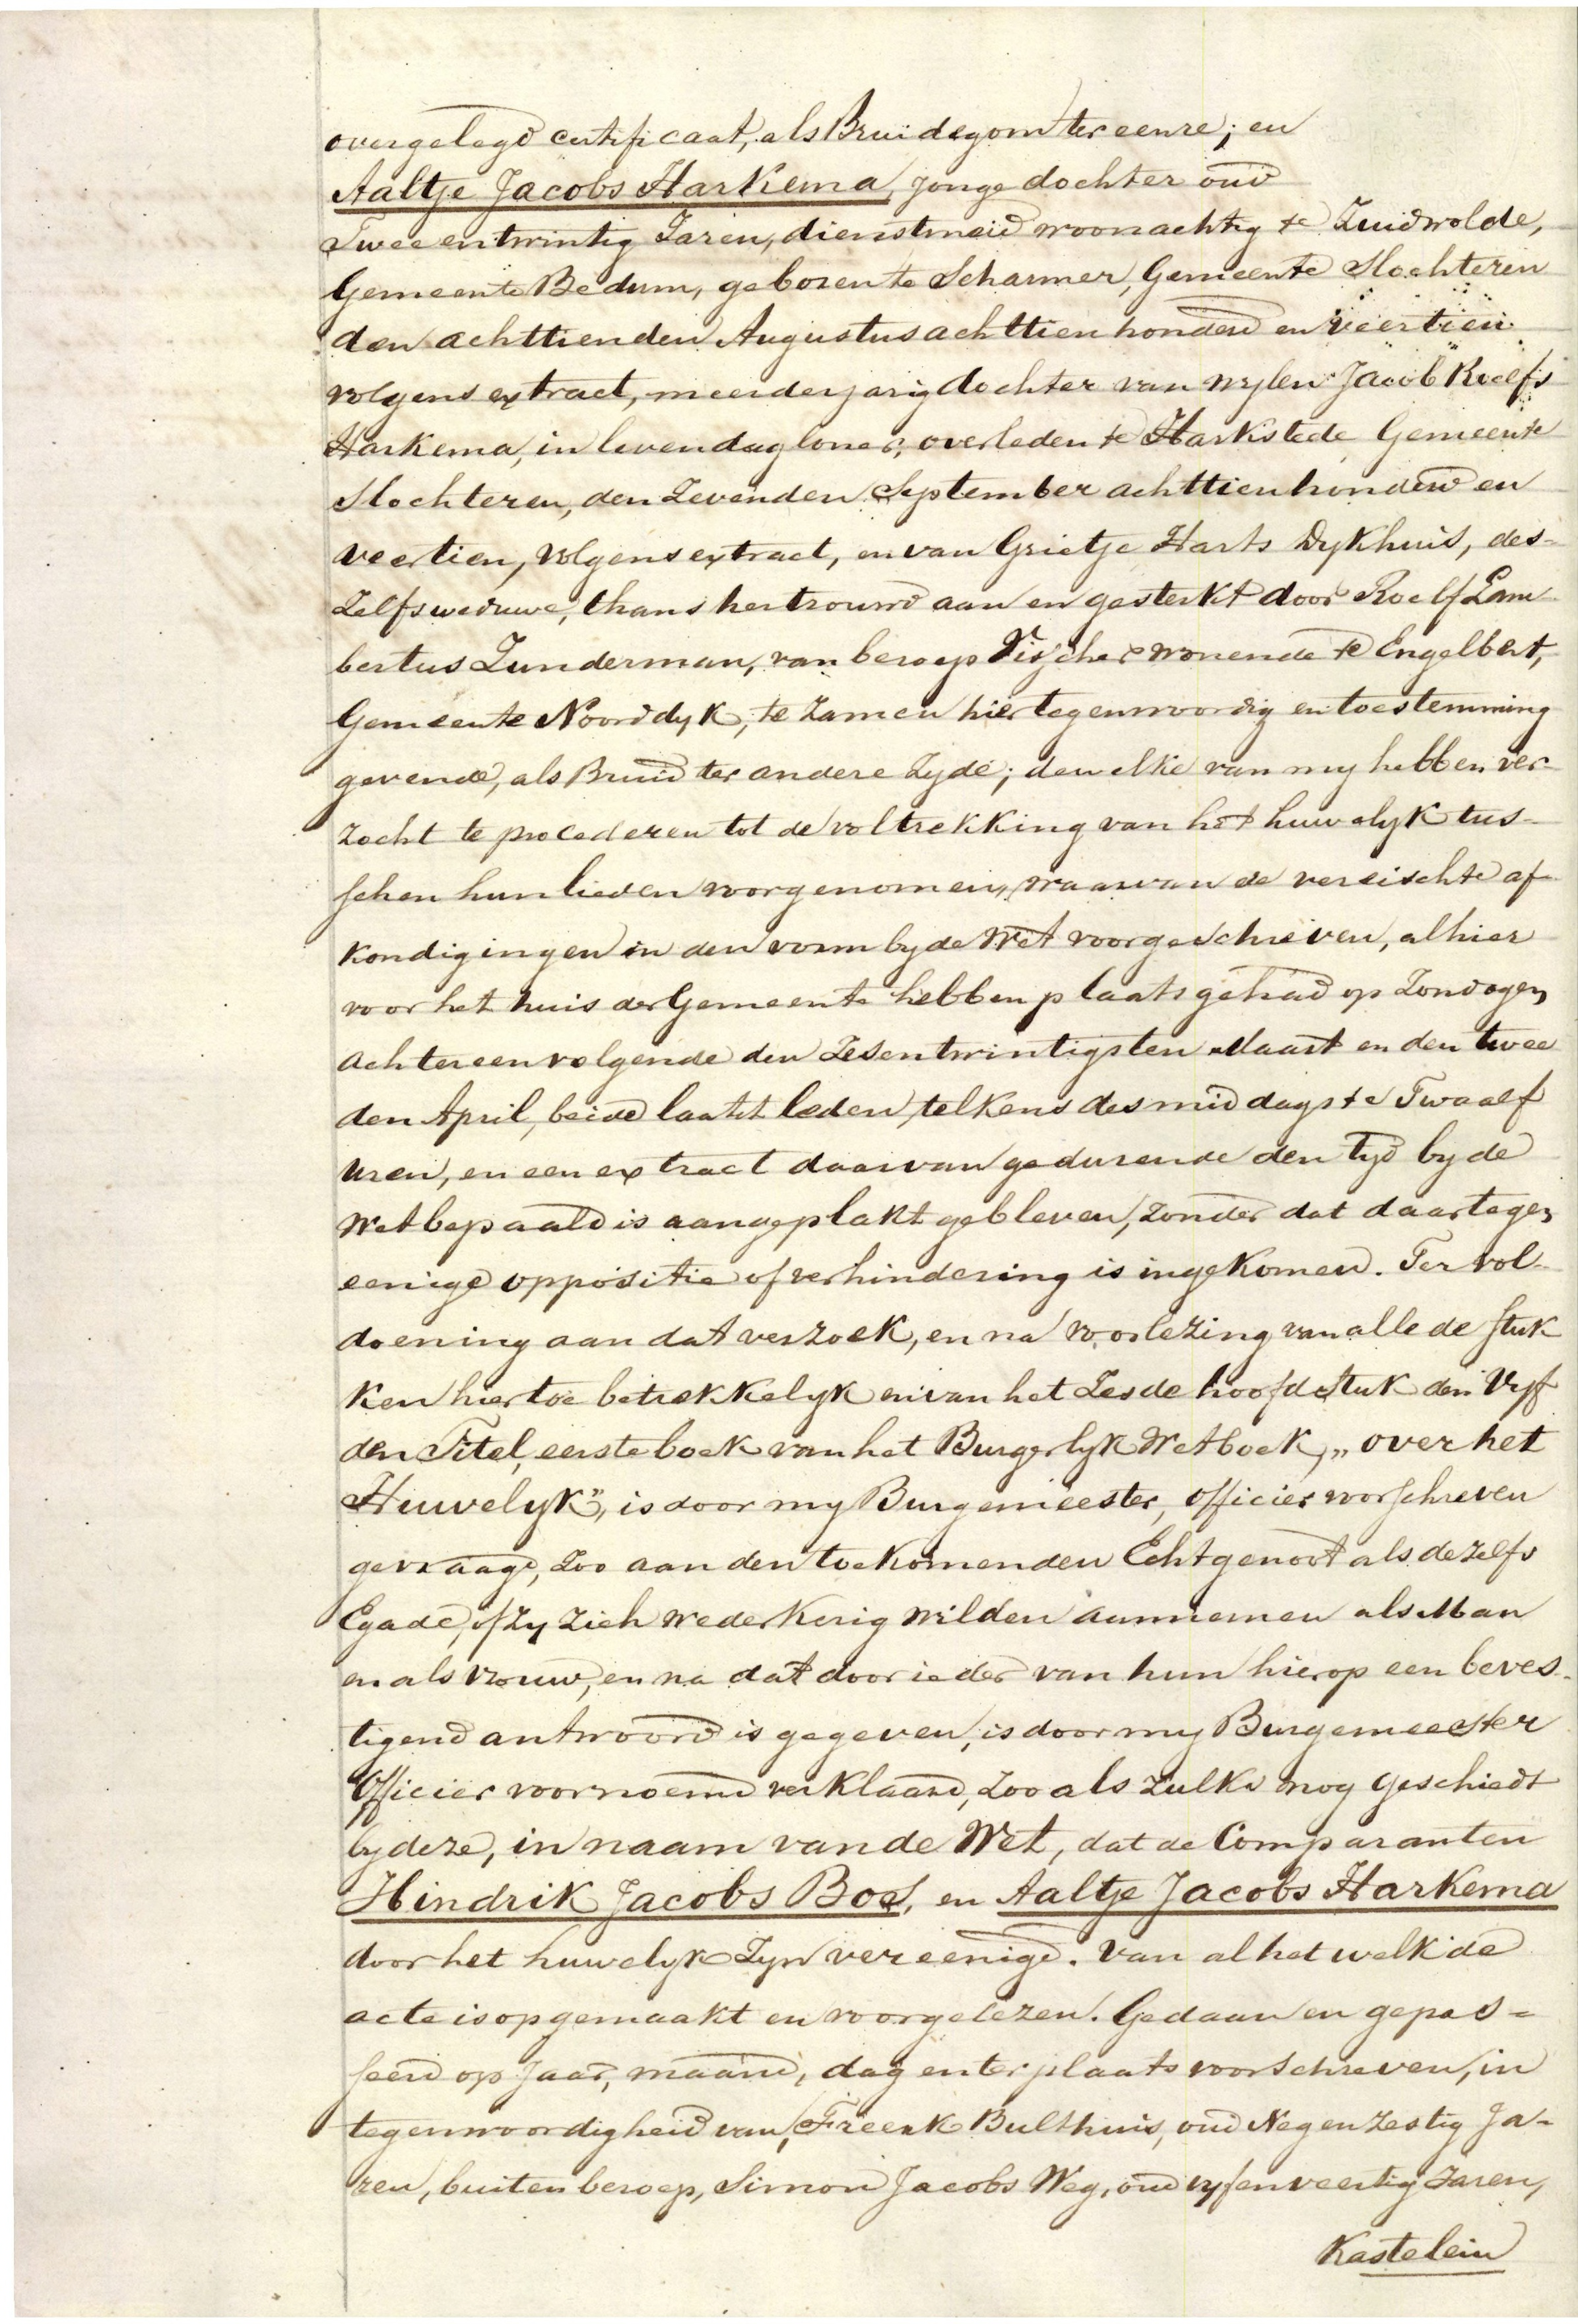 overgelegd certificaat, als Bruidegom ter eenre; en
Aaltje Jacobs Harkema, jonge dochter oud
Twee entwintig Jaren, dienstmeid woonachtig te Zuidwolde,
Gemeente Bedum, geboren te Scharmer, Gemeente Slochteren
den achttienden Augustus achttien honderd en veertien
volgens extract, meerderjarig dochter van wylen Jacob Roelfs
Harkema, in leven dagloner, overleden te Harkstede Gemeente
Slochteren, den Zevenden September achttien honderd en
veertien, volgens extract, en van Grietje Harts Dykhuis, des-
Zelfs weduwe, thans hertrouwd aan en gesterkt door Roelf Lam
bertus Zunderman, van beroep Visscher wonende te Engelbert,
Gemeente Noorddyk, te Zamen hier tegenwoordig en toestemming
gevende, als Bruid ter andere Zyde; dewelke van my hebben ver-
zocht te procederen tot de voltrekking van het huwelyk tus-
schen hun lieden voorgenomen, waarvan de vereischte af-
kondigingen in den vorm by de Wet voorgeschreven, alhier
voor het huis der Gemeente hebben plaats gehad op Zondagen
achtereenvolgende den Zesentwintigsten Maart en den twee
den April, beide laatst leden, telkens des middags te Twaalf
uren, en een extract daarvan gedurende den tyd by de
Wet bepaald is aangeplakt gebleven, zonder dat daartegen
eenige oppositie of verhindering is ingekomen. Ter vol-
doening aan dat verzoek, en na voorlezing van alle de stuk
ken hiertoe betrekkelyk en van het Zesde hoofdstuk den Vyf
den Titel, eerste boek van het Burgerlyk Wetboek, „over het
Huwelyk", is door my Burgemeester, Officier voorschreven
gevraagd, Zoo aan den toekomenden Echtgenoot als dezelfs
Egade, of Zy Zich wederkerig wilden aannemen als Man
en als vrouw, en na dat door ieder van hun hierop een beves-
tigend antwoord is gegeven, is door my Burgemeester
Officier voornoemd verklaard, Zoo als Zulks nog geschiedt
by deze, in naam van de Wet, dat de Comparanten
Hindrik Jacobs Bos, en Aaltje Jacobs Harkema
door het huwelyk Zyn vereenigd. Van al het welk de
acte is opgemaakt en voorgelezen. Gedaan en gepas=
seerd op Jaar, maand, dag en ter plaats voorschreven, in
tegenwoordigheid van, Freerk Bulthuis, oud Negen Zestig Ja-
ren, buiten beroep, Simon Jacobs Weg, oud vyfenveertig Jaren,
Kastelein